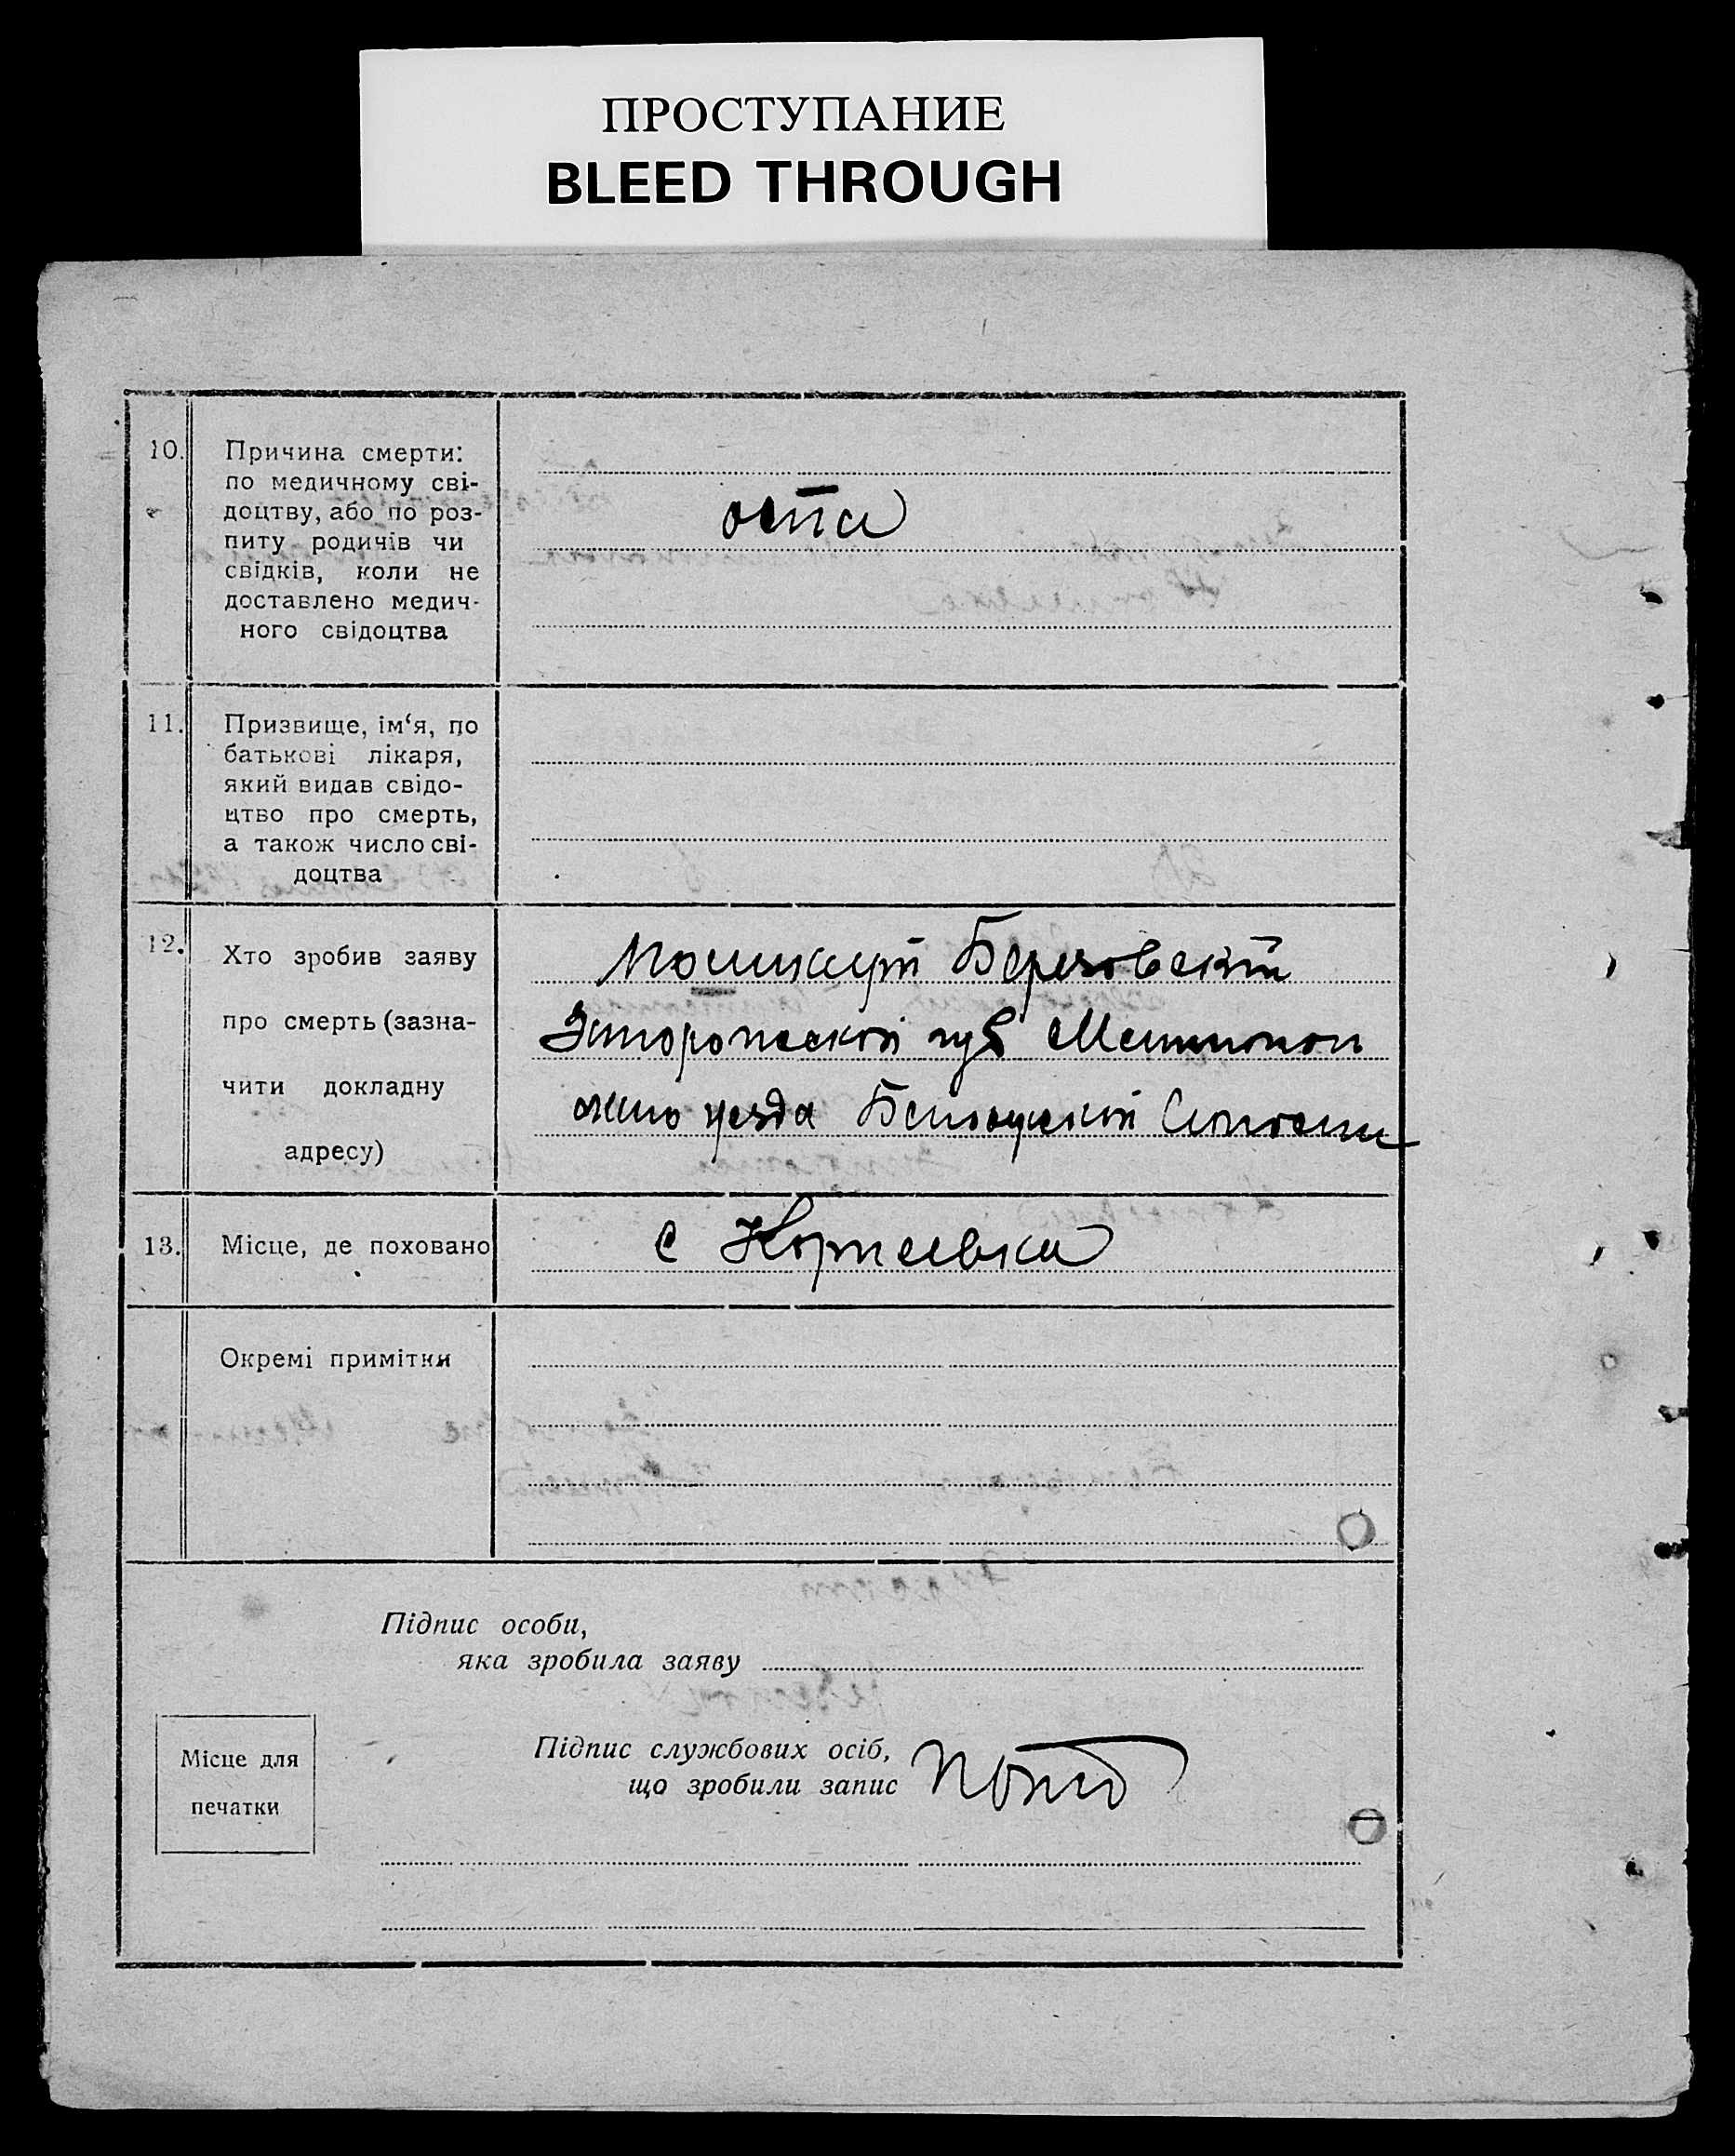 ПРОСТУПАНИЕ
BLEED THROUGH
10.
Причина смерти:
по медичному сві-
доцтву, або по роз-
питу родичів чи
свідків, коли не
доставлено медич-
ного свідоцтва
оспа
11.
Призвище, ім‘я, по
батькові лікаря,
який видав свідо-
цтво про смерть,
а також число сві-
доцтва
12.
Хто зробив заяву
про смерть (зазна-
чити докладну
адресу)
Березовский
губ
уезда
13.
Місце, де поховано
с Корнеевка
Окремі примітки
Підпис особи,
яка зробила заяву
Місце для
печатки
Підпис службових осіб,
що зробили запис